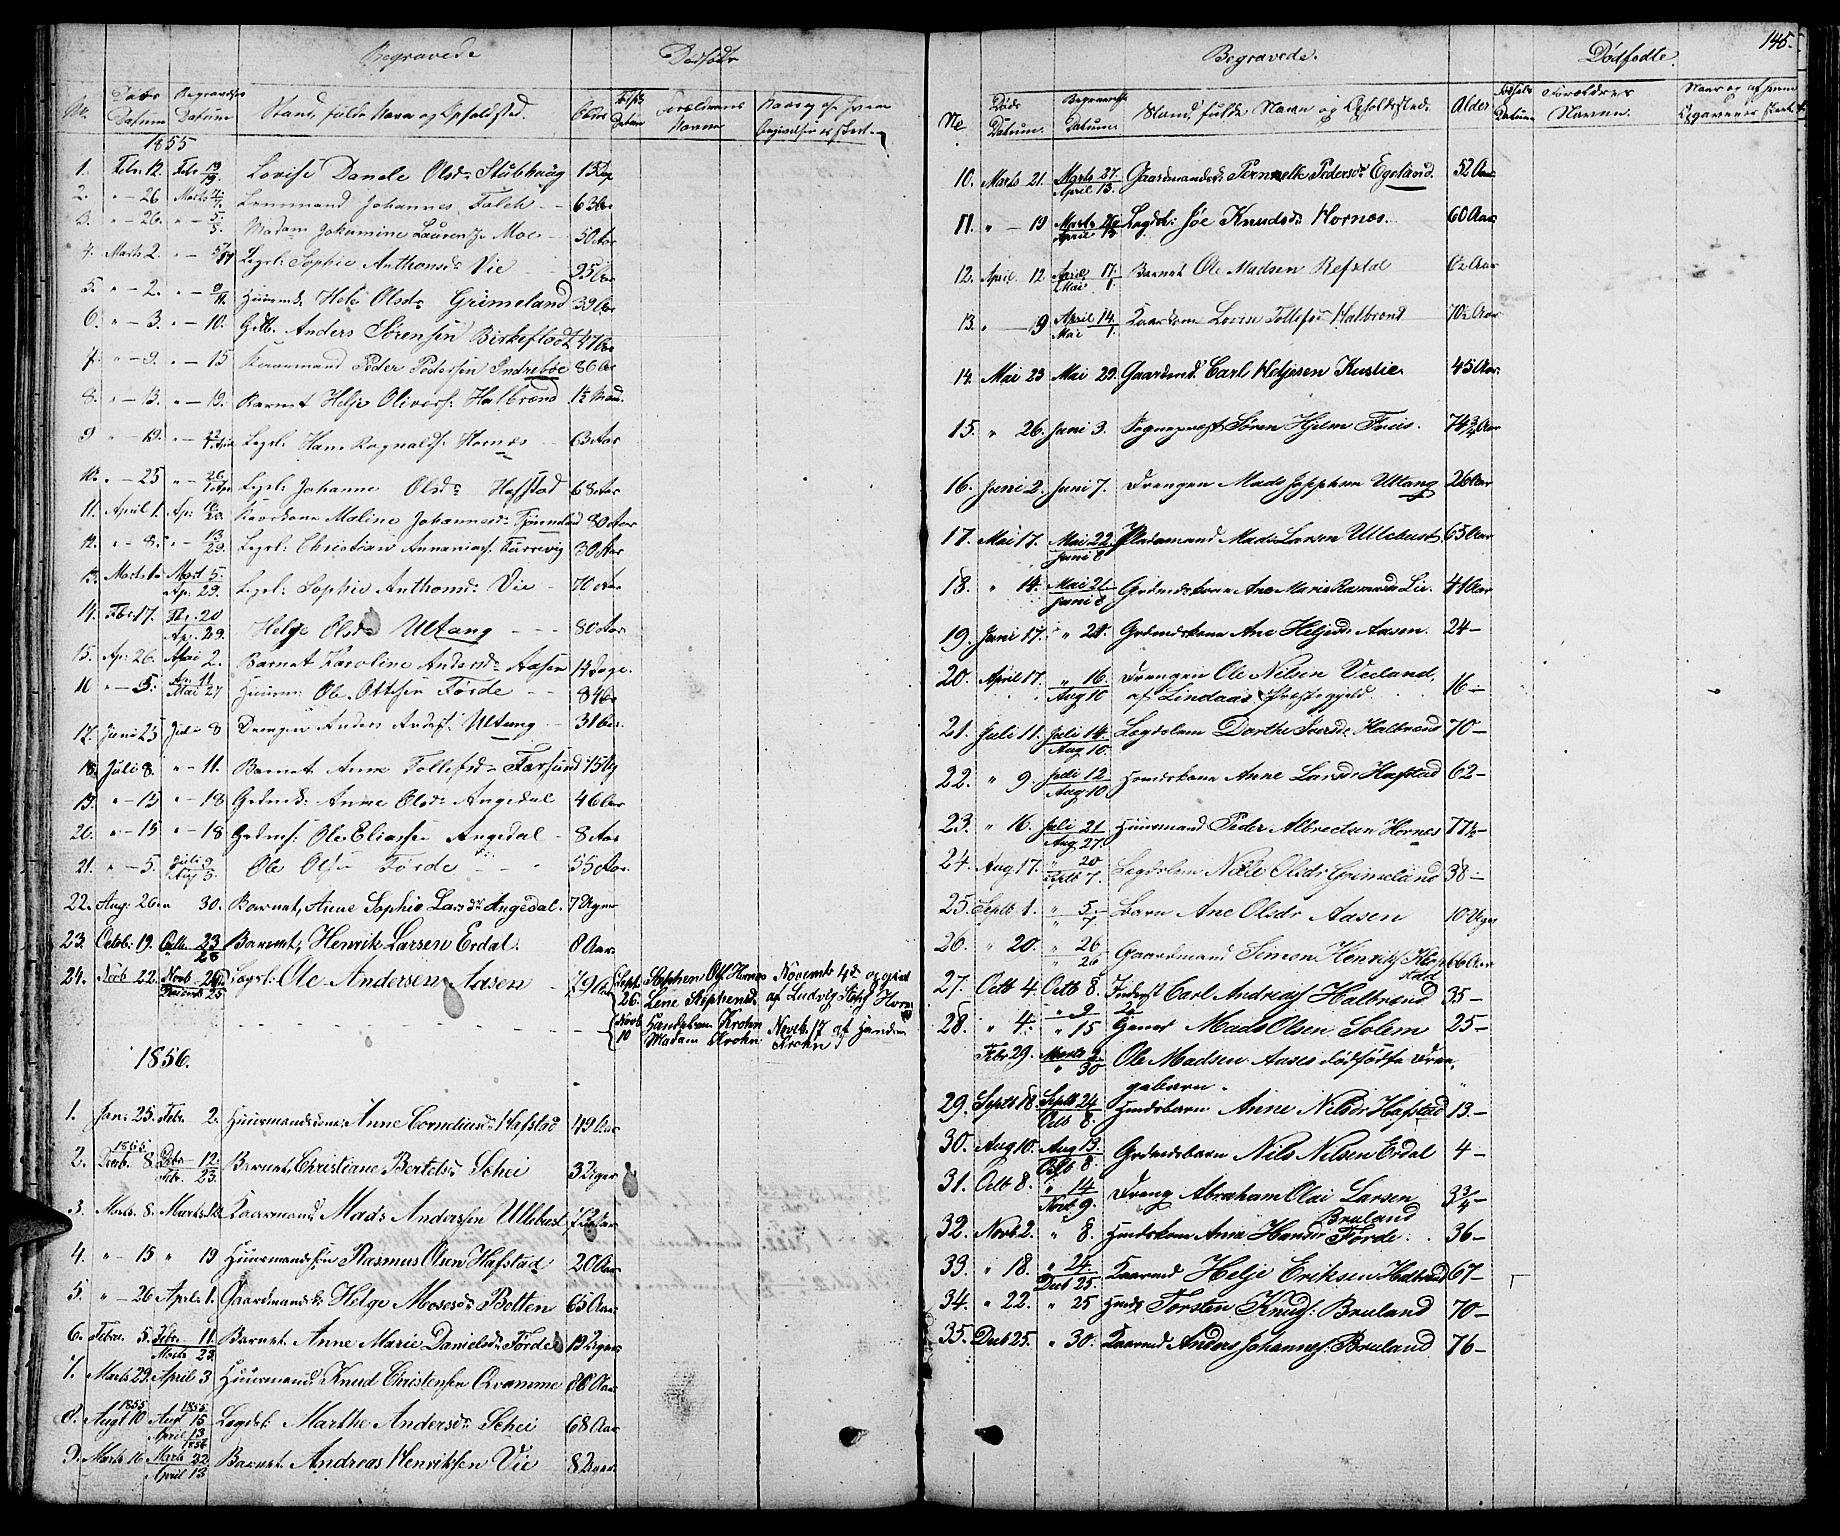 Begravede
Dødfødte
No.
Døds Datum
Begravelses Datum
Stand, fulde Navn og Opholdsted.
Alder
Fødsels Datum
Forældrenes Navne
1855
1. Febr. 12. Febr. 19 Lovise Danele Olsd: Stubhaug
2. " - 26 Marts Lensmand Johannes Falch - - 63 Aar
3. " - 26. " - 5 Madam Jokumine Laurentze Moe - 50 Aar
4. Marts 2. " - Legsl: Sophie Anthonsd: Vie 95 Aar
5. " - 2. " - 9/11. Huusmk. Helje Olsd: Grimeland 39 Aar
6. " - 3. " - 10. Grdb. Anders Sørensen Birkeflodt 47 Aar
7. " - 9. " - 15 Kaarmand Peder Pedersen Indrebøe 86 Aar
8. " - 13. " - 19. Barnet Helje Olivers: Halbrend 1½ Maad.
9 " - 19. " - Legsl: Hans Rognalds: Hornes 63 Aar
10. " - 25 " - 26. Legsl: Johanne Olsd: Hafstad 68 Aar
11. April 1. Ap: Kaarkone Maline Johannesd: 80 Aar
12. " - 8. " - 13 29. Legsl: Christian Annanias: Farsevig 30 Aar
13. Marts 1. Mart 5. Ap. 29. Legsl: Sophie Anthonsd: Vie - 70 Aar
14. Fbr 17. Fbr. 20 Ap. 29. Helge Olsd: Ultang - - - 80 Aar
15. Ap. 26. Mai 2. Barnet Karoline Andersd: Aasen 14 Dage.
16 " - 5. Ap. 11 Mai 27 Huusm: Ole Ottesen Førde - - 84 Aar
17. Juni 25 Juli 8 Drengen Anders Anders: Ultang - 31 Aar.
18. Juli 8. " - 11. Barnet Anne Tollefsd: Farsund 15 Dg
19. " - 13 " - 18 Grdmk: Anne Olsd: Angedal - 46 Aar
20. " - 15 " - 18 Grdms: Ole Eliassen Angedal - 8 Aar
21. " - 5. Juli 9 Aug 5 Ole Olsen Førde - - 55 Aar.
22. Aug: 26. " 30. Barnet, Anne Sophie Larsd: Angedal. 7 Uger
23. Octob: 19. Octb. 23 28 Barnet, Henrik Larsen Erdal. 8 Aar.
24. Novb 22. Novb 26 Decemb 25 Legsl: Ole Andersen Aasen - 79 Aar
Sept. 26. Stephen Ols: Hornes Lene Stephensd: Novemb 4de opgivet af Ludvig Steph: Hornes
Novb 10 Handelsm. Krohn Madam Krohn Novb. 17 af Handelsm Krohn
1856.
1. Jan: 25. Febr. 2. Huusmandskone Anne Corneliusd: Hafstad 49 Aar
2. 1855 Decb. 8. Debr 12. Febr. 23. Barnet, Christiane Bertelsd: Schei 3 Uger.
3. Marts. 8. Marts Kaarmand, Mads Anderssen Ullebust
4. " - 15 " 19 Huusmandssøn Rasmus Olsen Hafstad 20 Aar
5. " - 26 April 1. Gaardmandsk: Helge Mosesd: Botten 65 Aar.
6. Febru. 5. Febr. 11. Marts 23. Barnet Anne Marie Danielsd: Førde 13 Uger
7. Marts 29. April 3 Huusmand, Knud Christensen Qvamme 88 Aar
8. Augt 10 1855 Augt 15 1855 April 13 1856 Legdsl: Marthe Andersd: Schei 68 Aar
9. Marts 16 Marts 22 April 13 Barnet Andreas Henriksen Vie 8 Uger.
145.
Begravede.
Dødfødte.
No
Døds Datum.
Begravelses Datum.
Stand, fulde Navn og Opholdsted.
Alder
Fødsels Datum
Forældres Navne.
10. Marts 21. Marts 27. April 13. Gaardmandsk: Pernnelle Pedersd: Egeland. 52 Aar.
11. " - 19 Marts 26 April 13 Legdsl: Joe Knudsd: Hornes. 60 Aar
12. April 12. April 17. Mai 1. Barnet Ole Madsen Refstal Aar
13. " - 19 April 14. Mai 1. Kaarkone Tollefsd: Halbrend 70½ Aar
14. Mai 23 Mai 29. Gaardmd. Carl Heljesen Kuslie. 45 Aar.
15. " 26. Juni 3. Sognepræst Søren Hjelm Friis. 74¾ Aar
16. Juni 2. Juni 7. Drengen Mads Josephsen Ultang 26 Aar
17. Mai 17. Mai 22. Juni 8 Pladsmand Mads Larsen Ullebust 65 Aar
18. " 14. Mai 21. Juni 8 Grdmdskone Ane Marie Rasmusd: Lie. 41 Aar
19. Juni 17. " 21. Grdmdskone Ane Heljesd: Aasen. 24 -
20. April 17. " 16. Aug 10 Drengen Ole Nilsen Veiland, af Lindaas Præstegjeld. 16 -
21. Juli 11. Juli 14. Aug 10. Legdslem Dorthe Halbrend 70 -
22. " 9. Juli 12 Aug 10 Hmdskone Anne Larsd: Hafstad 62 -
23. " 16. Juli 21 Aug 27. Huusmand Peder Albrectsen Hornes 77½ -
24. Aug 17. " 20 Septb 7. Legdslem Nille Olsdr Grimeland 38 -
25. Septb 1. " 5. " 7 Barn Ane Olsdr Aasen 10 Uger
26. " 20. " 26 " 26 Gaardmand Simon Henriks: Hafstad 66 Aar
27. Octb 4. Octb 8. Inderst Carl Andreas: Halbrend 35 -
28. " 4. " 9 " 15 Mads Olsen Solem 25 -
Febr 29. Marts 9. " 30 Ole Madsen Aases dødfødte Drengebarn.
29. Septb 18. Septb 24 Octb 8. Hmdsbarn Anne Nilsdr Hafstad 13 -
30. Aug 10. Aug 13. Octb 8. Grdmdsbarn Nils Nilsen Erdal 4 -
31. Octb 8. " 14 Novb 9. Dreng Abraham Olai Larsen Bruland 3¾ -
32. Novb. 2. " 8. Hmdskone Anne Hansdr Førde. 36 -
33. " 18. " 24. Decb 25. Kaarmd Helje Eriksen Halbrend 67 -
34. " 22. " 25 Hmd: Torsten Knuds: Bruland 70 -
35. Decb 25. " 30. Kaarmd Anders Johannes: Bruland 76 -